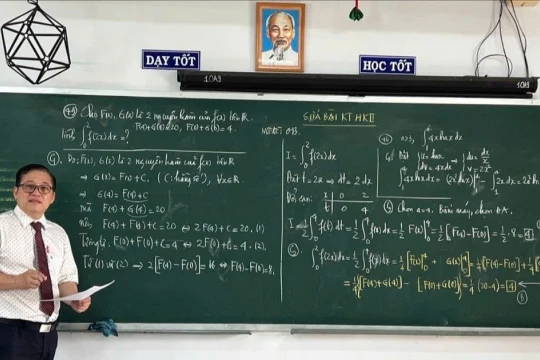 DẠY TỐT
HỌC TỐT
10A9
10A9
GIẢI BÀI KT HKII
Cho F(x), G(x) là 2 nguyên hàm của f(x) trên R.
F(4)+G(4)=20, F(0)+G(0)=4.
Tính ∫₀² f(2x)dx = ?
G. Do F(x), G(x) là 2 nguyên hàm của f(x) trên R
⇒ G(x) = F(x) + C, (C: hằng số), ∀x∈R
⇒ G(4) = F(4) + C
mà F(4) + G(4) = 20
nên F(4) + F(4) + C = 20 ⇔ 2F(4) + C = 20. (1)
Tương tự: F(0) + F(0) + C = 4 ⇔ 2F(0) + C = 4. (2)
Từ (1) và (2) ⇒ 2[F(4) − F(0)] = 16 ⇔ F(4) − F(0) = 8.
I = ∫₀² f(2x)dx
Đặt t = 2x ⇒ dt = 2dx
Đổi cận: x 0 2
t 0 4
I = ½∫₀⁴ f(t)dt = ½∫₀⁴ f(x)dx = ½ F(x)|₀⁴ = ½[F(4) − F(0)] = ½·8 = 4
∫₀² f(2x)dx = ½∫₀⁴ f(x)dx = ¼[F(x)|₀⁴ + G(x)|₀⁴] = ¼[F(4) − F(0)] + ¼[
= ¼[(F(4) + G(4)) − (F(0) + G(0))] = ¼(20−4) = 4
4x lnx dx
Đặt u = lnx
dv = 4x dx
du = dx/x
v = 2x²
Chọn a=4. Bấm máy, chọn ĐA.